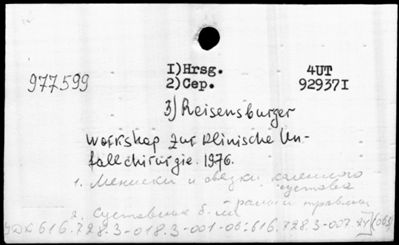 I)Hrsg. 4UT
977599 2)Сер. 92937I
3) Reisensburger
Workshop zur klinische Un-
fallchirurgie. 1976.
1. Мениски и связки коленного
сустава
- ранения травмы
2. Суставная б.
УДК 616.728.3-018.3-001-06:616.728.3-007.24(063)